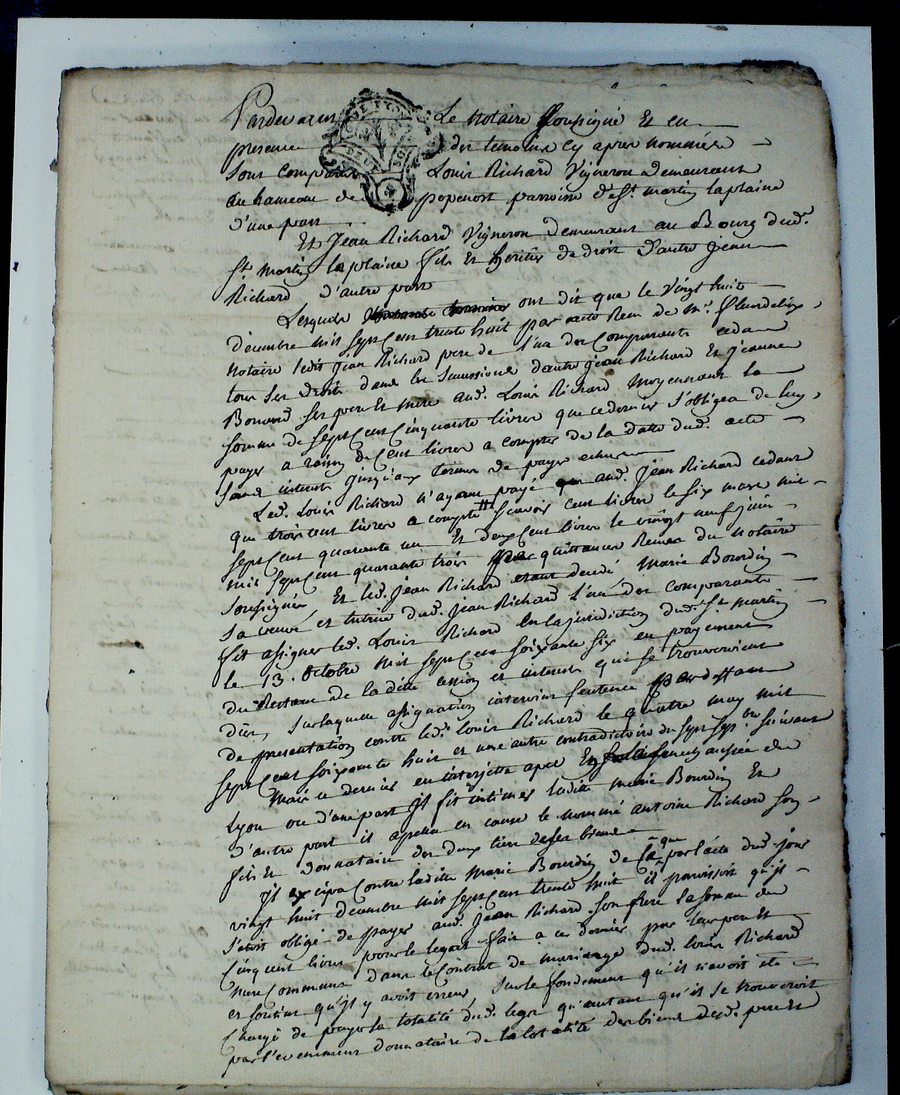 Pardevant Le Notaire soussigné et en
presence des temoins cy apres nommés
sont comparus Louis Richard Vigneron demeurant
au hameau de popenost parroisse de St. martin laplaine
d'une part
Et Jean Richard Vigneron demeurant au Bourg dud.
St. Martin laplaine fils et heritier de droit d'autre jean
Richard d'autre part
Lesquels ont dit que le vingt huit
decembre mil sept cent trente huit par acte Reçu de Me.
notaire ledit Jean Richard pere de l'un des comparants ceda
tous ses droits dans les successions d'autre jean Richard et jeanne
ses pere et mere aud. Louis Richard moyennant la
somme de sept cent cinquante livres que ce dernier s'obligea de luy
payer a raison de cent livres a compter de la date dud. acte
sans interets jusqu'aux termes de payes echus
Led. Louis Richard n'ayant payé aud. Jean Richard cedant
que trois cent livres a compte scavoir cent livres le six mars mil
sept cent quarante un et deux cent livres le vingt neuf juin
mil sept cent quarante trois quittances Reçues du notaire
soussigné, Et led. Jean Richard etant decedé Marie Bourdin
sa veuve et tutrice dud. Jean Richard l'un des comparants
fit assigner led. Louis Richard en la jurisdiction dud. St. martin
le 13. octobre mil sept cent soixante six en payement
du Restant de la dite cession et interets qui se trouveroient
dûs, sur laquelle assignation intervint sentence par deffaut
de presentation contre led. louis Richard le quatre may mil
sept cent soixante huit et une autre contradictoire du sept sepbre. suivant
Mais ce dernier en interjetta apel en la senechaussée de
Lyon ou d'une part Il fit intimer ladite marie Bourdin Et
d'autre part il appella en cause le nommé antoine Richard son
fils et donnataire des deux tiers de ses biens
Il excipa contre ladite Marie Bourdin de ce que par l'acte dud. jour
vingt huit decembre mil sept cent trente huit il paroissoit qu'il
s'etoit obligé de payer aud. Jean Richard son frere la somme de
cinq cent livres pour le legat fait a ce dernier par leur pere et
mere communs dans le contrat de mariage dud. louis Richard
et soutint qu'il y avoit erreur, sur le fondement qu'il n'avoit été
chargé de payer la totalité dud. legat qu'autant qu'il se trouveroit
par l'evenement donnataire de la totalité des biens desd. pere et